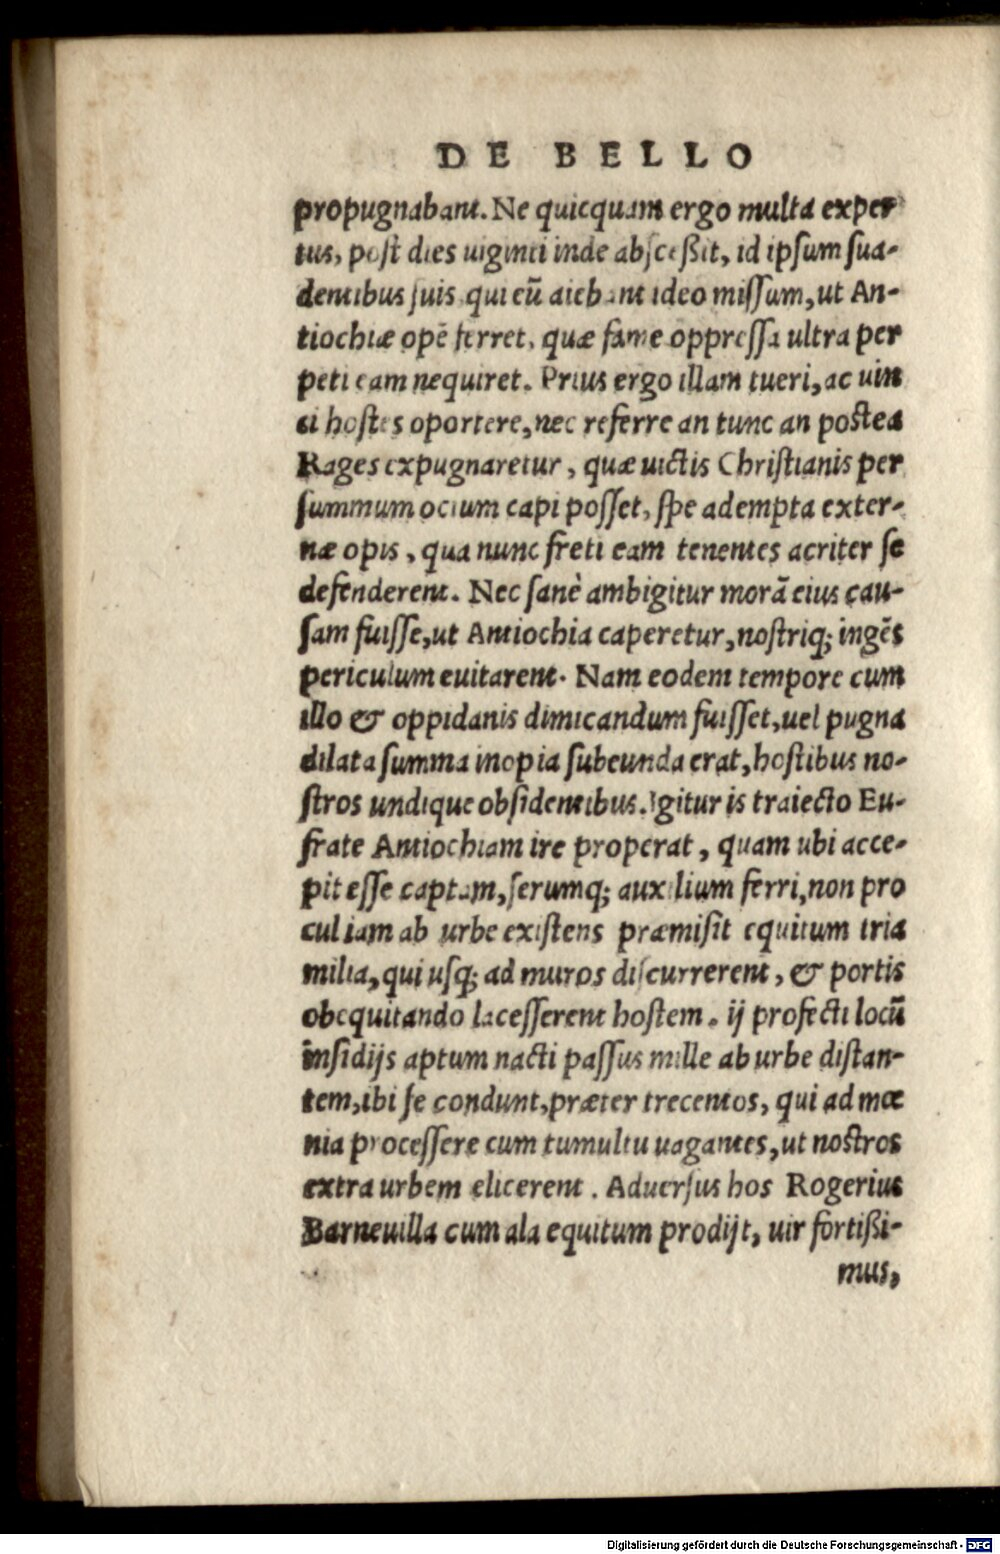 DE BELLO
propugnabant. Ne quicquam ergo multa exper
tus, post dies uiginti inde absceßit, id ipsum sua-
dentibus suis qui eū aiebant ideo missum, ut An-
tiochiæ opē ferret, quæ fame oppressa ultra per
peti eam nequiret. Prius ergo illam tueri, ac uin
ci hostes oportere, nec referre an tunc an postea
Rages expugnaretur, quæ uictis Christianis per
summum ocium capi posset, spe adempta exter-
næ opis, qua nunc freti eam tenentes acriter se
defenderent. Nec sanè ambigitur morā eius cau-
sam fuisse, ut Antiochia caperetur, nostriq; ingēs
periculum euitarent. Nam eodem tempore cum
illo & oppidanis dimicandum fuisset, uel pugna
dilata summa inopia subeunda erat, hostibus no-
stros undique obsidentibus. Igitur is traiecto Eu-
frate Antiochiam ire properat, quam ubi acce-
pit esse captam, serumq; auxilium ferri, non pro
cul iam ab urbe existens præmisit equitum tria
milia, qui usq; ad muros discurrerent, & portis
obequitando lacesserent hostem. ij profecti locū
insidijs aptum nacti passus mille ab urbe distan-
tem, ibi se condunt, præter trecentos, qui ad mœ
nia processere cum tumultu uagantes, ut nostros
extra urbem elicerent. Aduersus hos Rogerius
Barneuilla cum ala equitum prodijt, uir fortißi-
mus,
Digitalisierung gefördert durch die Deutsche Forschungsgemeinschaft - DFG